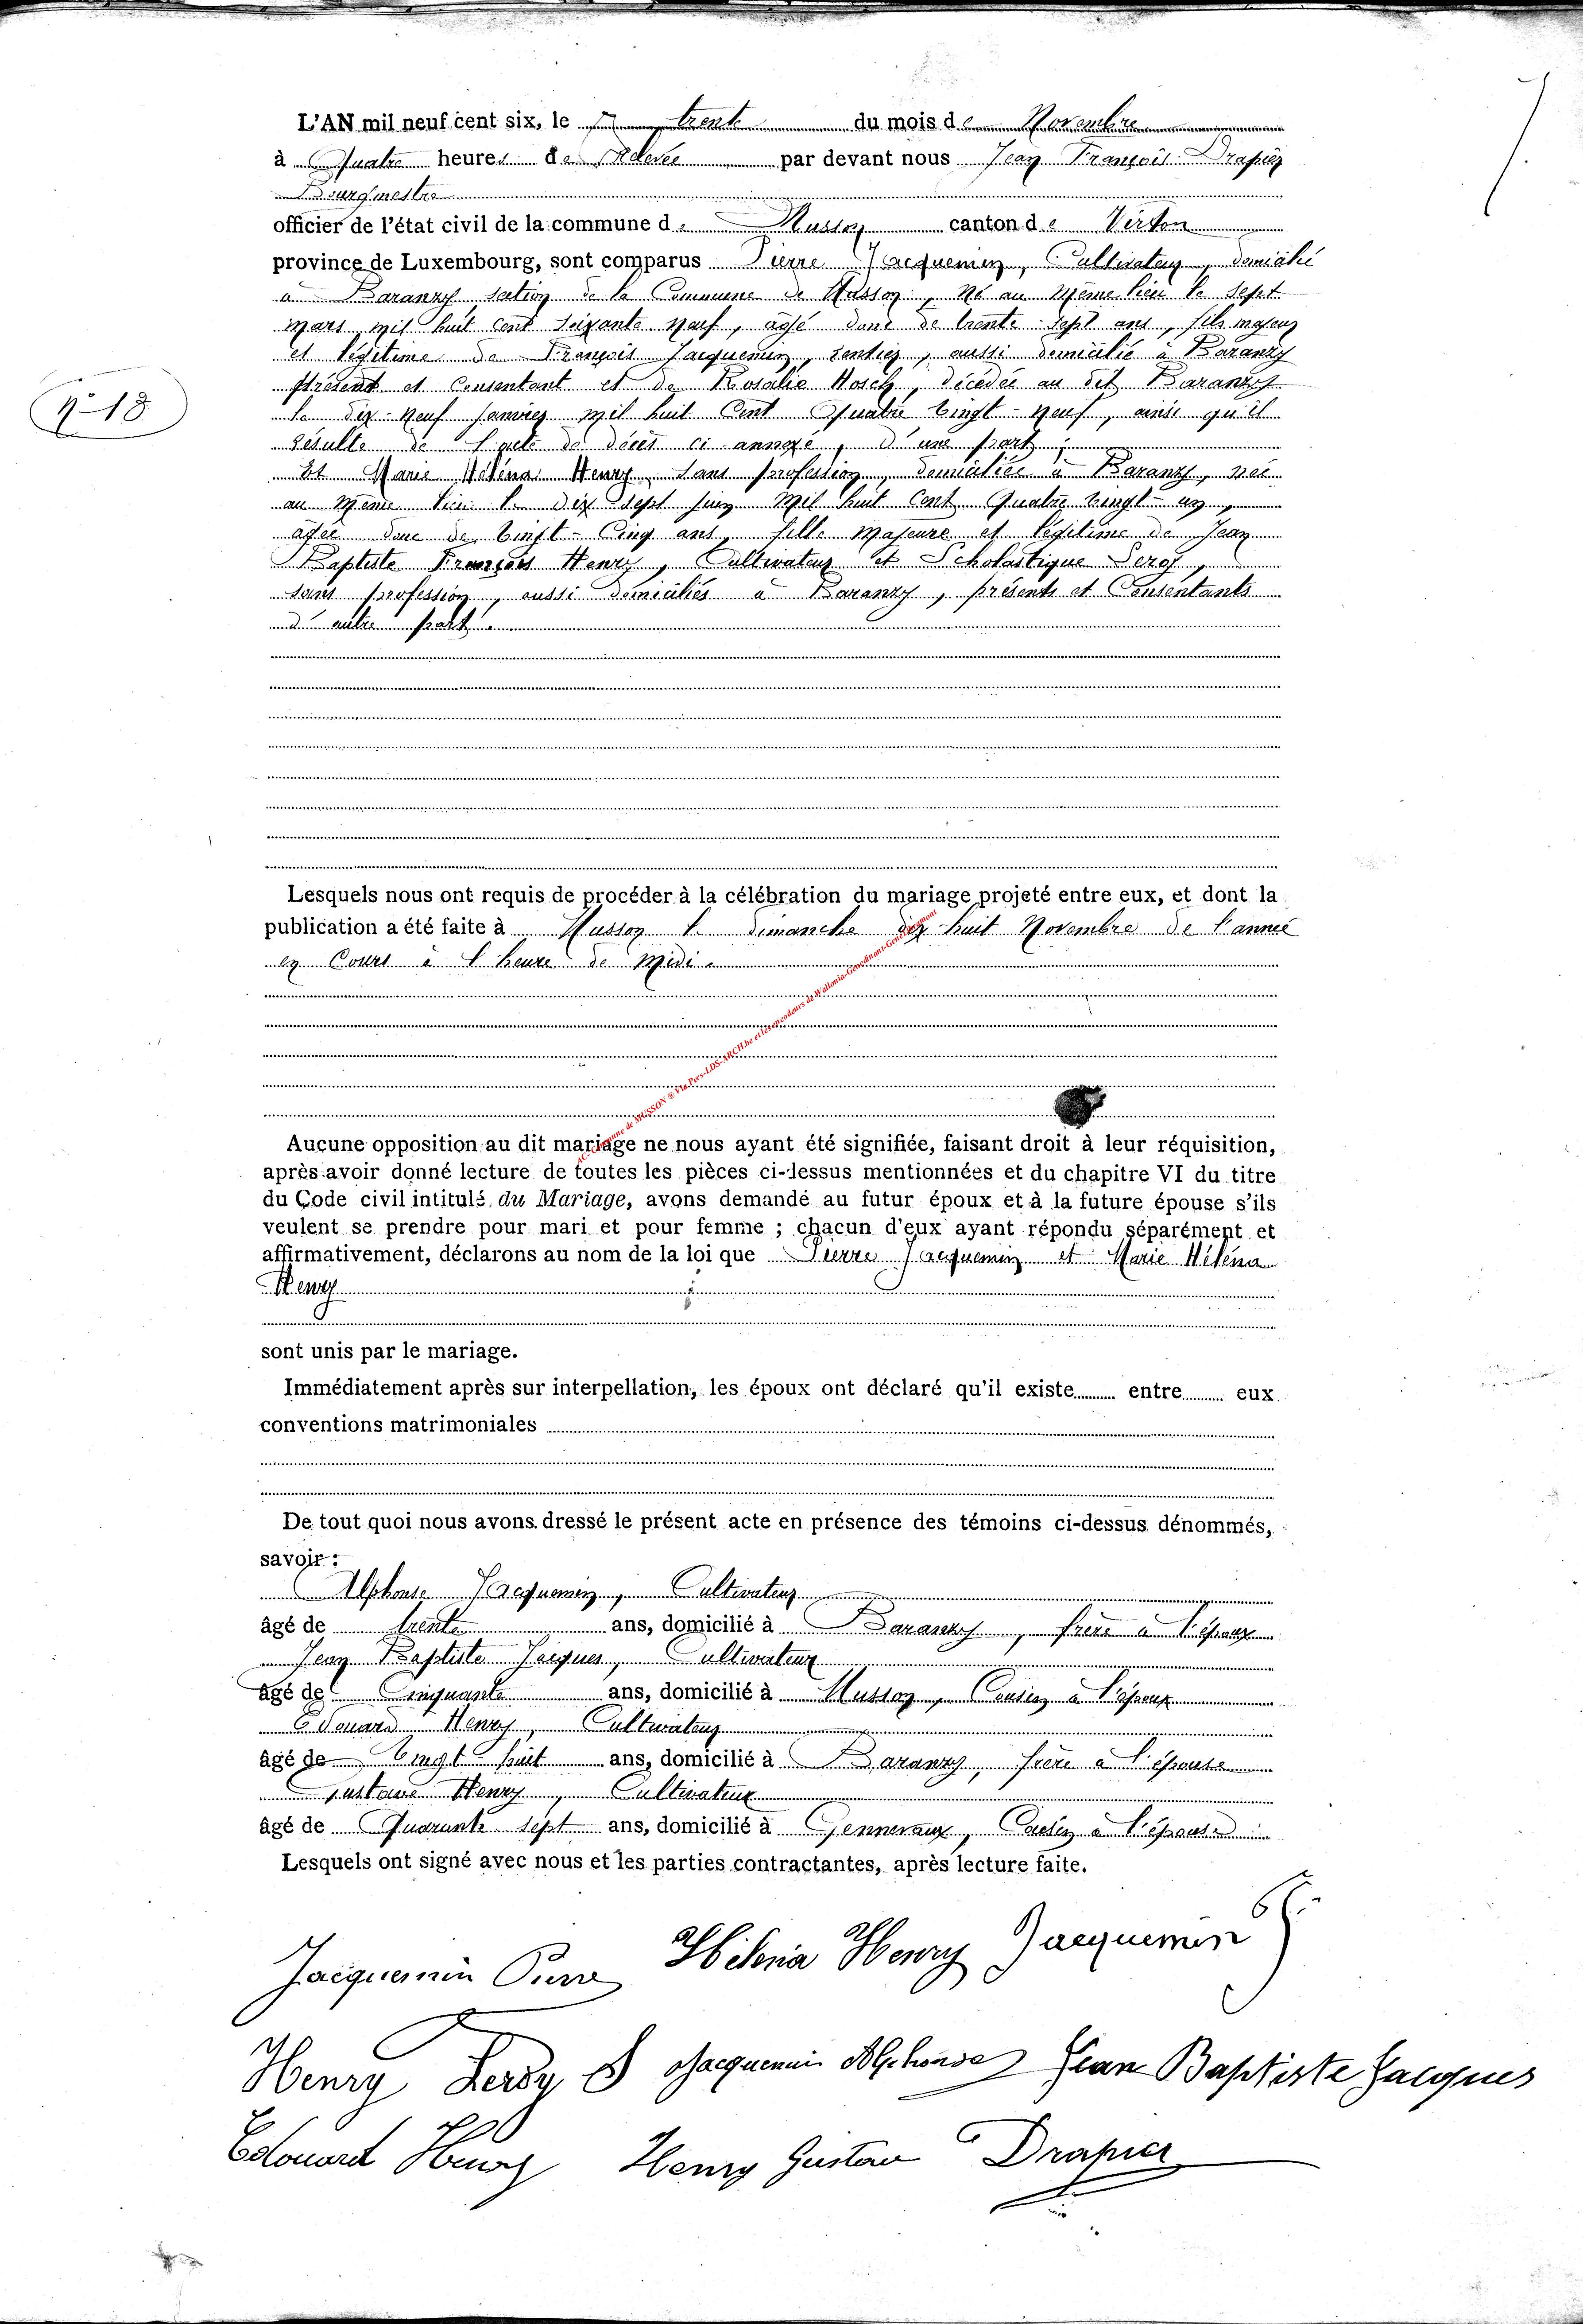 L'AN mil neuf cent six, le trente du mois de Novembre
à Quatre heures de Relevée par devant nous Jean François Drapier
Bourgmestre
officier de l'état civil de la commune de Musson canton de Virton
province de Luxembourg, sont comparus Pierre Jacquemin, Cultivateur, domicilié
à Baranzy section de la Commune de Musson, Né au Même lieu le Sept
mars mil huit cent soixante neuf, agé donc de trente sept ans, fils majeur
et légitime de François Jacquemin, rentier, aussi domicilié à Baranzy
présent et Consentant et de Rosalie Hosch, décédée au dit Baranzy
le dix-neuf janvier mil huit Cent Quatre Vingt-neuf, ainsi qu'il
résulte de l'acte de décès ci-annexé, d'une part ;
N°-18
Et Marie Héléna Henry sans profession, domiciliée à Baranzy, née
au Même lieu le dix sept juin Mil huit Cent Quatre vingt-un,
agée donc de Vingt-Cinq ans, fille Majeure et légitime de Jean
Baptiste François Henry, Cultivateur et Scholastique Leroy,
sans profession, aussi domiciliés à Baranzy, présents et Consentants
d'autre part.
Lesquels nous ont requis de procéder à la célébration du mariage projeté entre eux, et dont la
publication a été faite à Musson le dimanche dix huit Novembre de l'année
en Cours à l'heure de Midi.
AC Commune de MUSSON ® Via Pers-LDS-ARCH.be et les encodeurs de Wallonia-Genedinant-Geneagaumont
Aucune opposition au dit mariage ne nous ayant été signifiée, faisant droit à leur réquisition,
après avoir donné lecture de toutes les pièces ci-dessus mentionnées et du chapitre VI du titre
du Code civil intitulé du Mariage, avons demandé au futur époux et à la future épouse s'ils
veulent se prendre pour mari et pour femme ; chacun d'eux ayant répondu séparément et
affirmativement, déclarons au nom de la loi que Pierre Jacquemin et Marie Héléna
Henry
sont unis par le mariage.
Immédiatement après sur interpellation, les époux ont déclaré qu'il existe entre eux
conventions matrimoniales
De tout quoi nous avons dressé le présent acte en présence des témoins ci-dessus dénommés,
savoir :
Alphonse Jacquemin, Cultivateur
âgé de trente ans, domicilié à Baranzy, frère à l'époux
Jean Baptiste Jacques, Cultivateur
âgé de Cinquante ans, domicilié à Musson, Cousin à l'époux
Edouard Henry, Cultivateur
âgé de Vingt huit ans, domicilié à Baranzy, frère à l'épouse
Gustave Henry, Cultivateur
âgé de Quarante sept ans, domicilié à Gennevaux, Cousin à l'épouse
Lesquels ont signé avec nous et les parties contractantes, après lecture faite.
Jacquemin Pierre Héléna Henry Jacquemin
Henry Leroy S Jacquemin Alphonse Jean Baptiste Jacques
Edouard Henry Henry Gustave Drapier